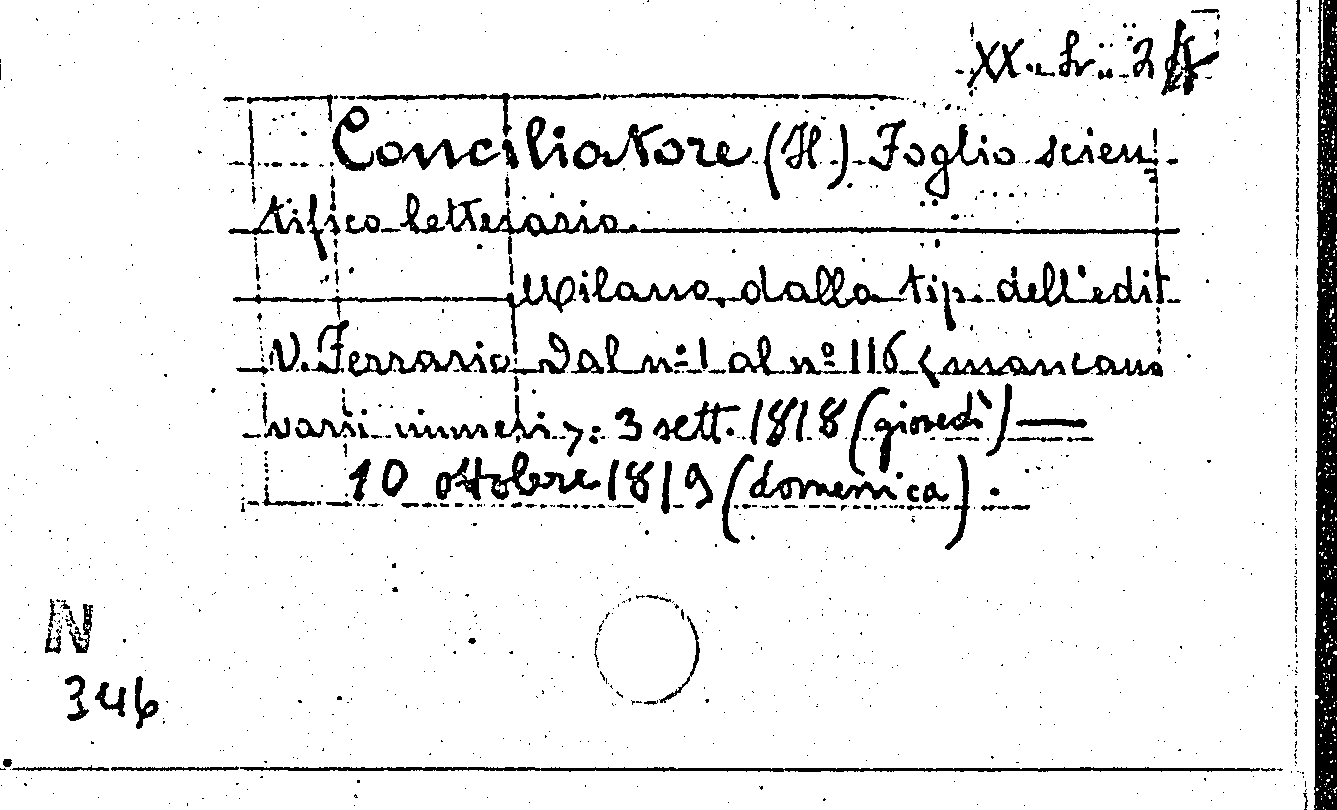 XX. Lr. 2
Conciliatore (Il) Foglio scien=
tifico letterario.
Milano, dalla tip. dell'edit
V. Ferrario Dal nº 1 al nº 116 (mancano
varii numeri): 3 sett. 1818 (giovedì) —
10 ottobre 1819 (domenica).
N
346